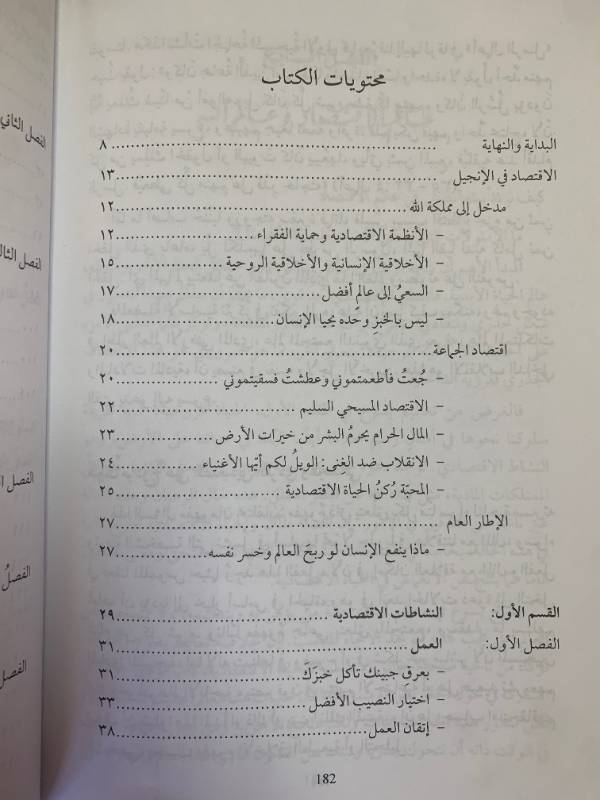 محتويات الكتاب
البداية والنهاية ........ ٨
الاقتصاد في الإنجيل ........ ١٣
مدخل إلى مملكة الله ........ ١٢
– الأنظمة الاقتصادية وحماية الفقراء ........ ١٢
– الأخلاقية الإنسانية والأخلاقية الروحية ........ ١٥
– السعيُ إلى عالمٍ أفضل ........ ١٧
– ليس بالخبزِ وحده يحيا الإنسان ........ ١٨
اقتصاد الجماعة ........ ٢٠
– جُعتُ فأطعمتموني وعطشتُ فسقيتموني ........ ٢٠
– الاقتصاد المسيحي السليم ........ ٢٢
– المال الحرام يحرمُ البشر من خيرات الأرض ........ ٢٣
– الانقلاب ضد الغِنى: الويلُ لكم أيّها الأغنياء ........ ٢٤
– المحبّة رُكنُ الحياة الاقتصادية ........ ٢٥
الإطار العام ........ ٢٧
– ماذا ينفع الإنسان لو ربحَ العالم وخسر نفسه ........ ٢٧
القسم الأول: النشاطات الاقتصادية ........ ٢٩
الفصل الأول: العمل ........ ٣١
– بعرقِ جبينك تأكل خبزَكَ ........ ٣١
– اختيار النصيب الأفضل ........ ٣٣
– إتقان العمل ........ ٣٨
182
الفصل الثاني
الفصل
الفصلُ